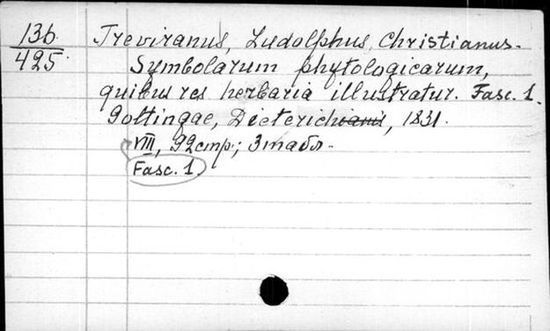 136
425
Treviranus, Ludolphus Christianus.
Symbolarum phytologicarum,
quibus res herbaria illustratur. Fasc. 1.
Gottingae, Dieterichianis, 1831.
VIII, 92 стр; 3 табл.
Fasc. 1.